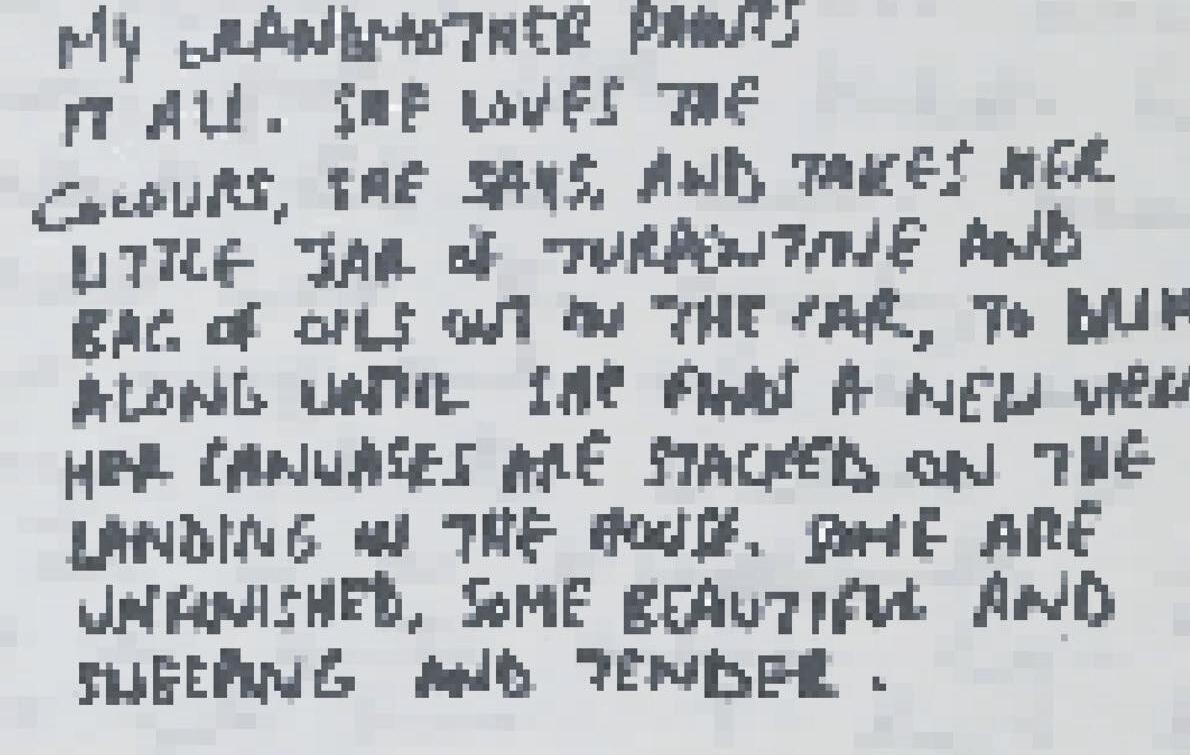 MY GRANDMOTHER PAINTS
IT ALL. SHE LOVES THE
COLOURS, SHE SAYS, AND TAKES HER
LITTLE JAR OF TURPENTINE AND
BAG OF OILS OUT IN THE CAR, TO
ALONG UNTIL SHE FINDS A NEW VIEW
HER CANVASES ARE STACKED ON THE
LANDING IN THE HOUSE. SOME ARE
UNFINISHED, SOME BEAUTIFUL AND
SWEEPING AND TENDER.